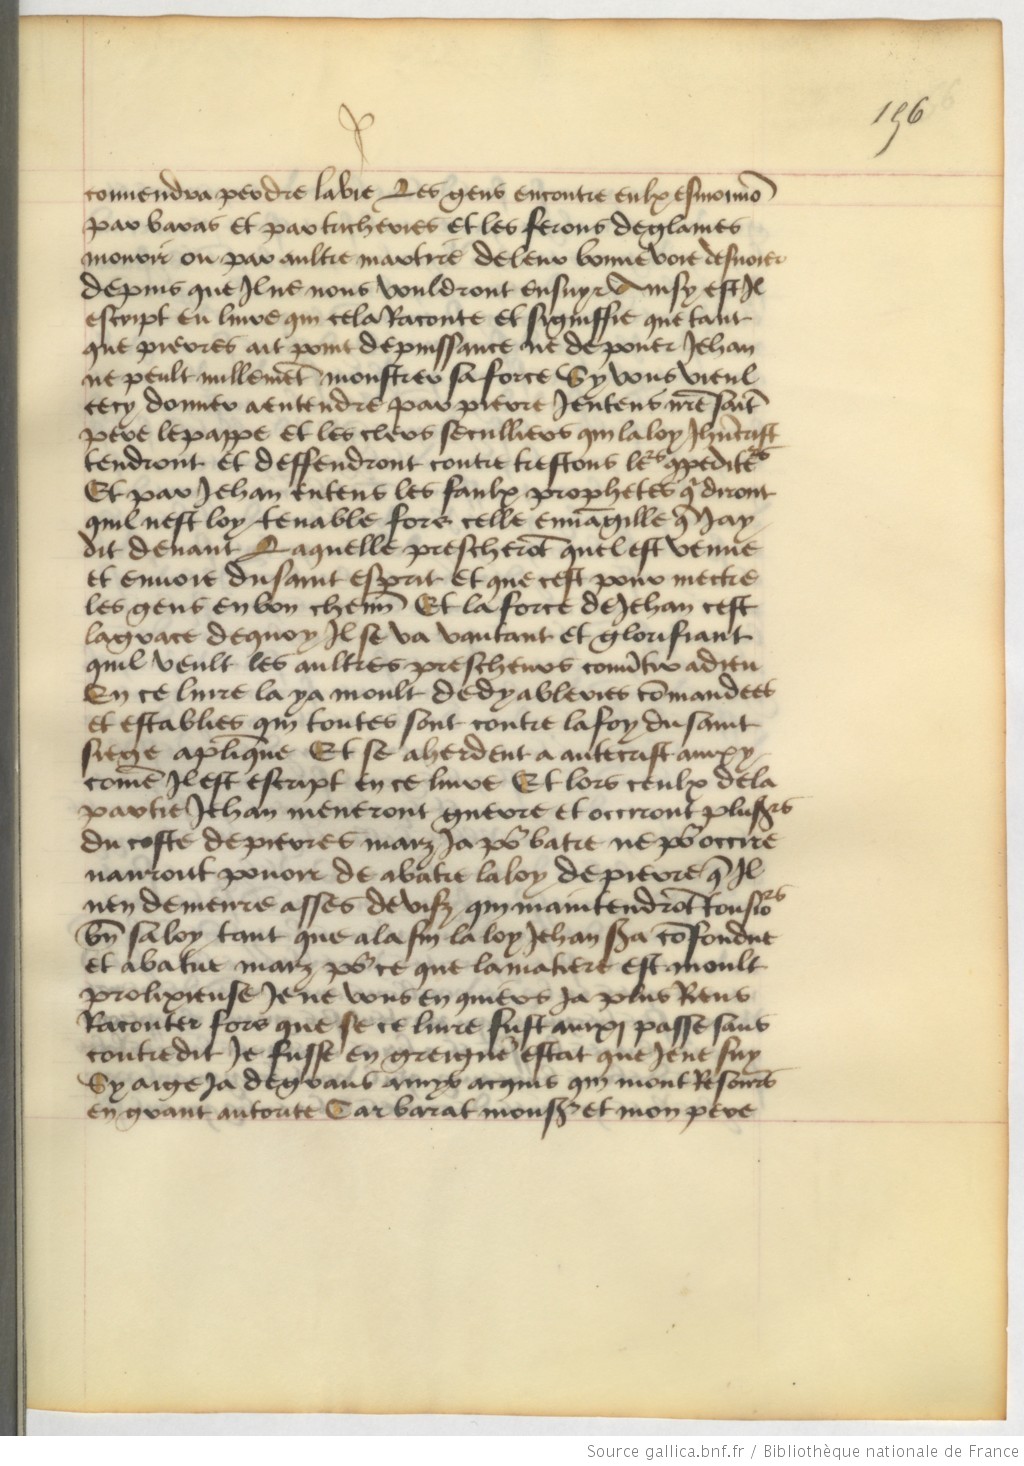 196
conuiendra perdre la vie Les gens encontre eulx esmouuõ
par baras et par tricheries et les ferons deglaiues
mourir ou par aultre martire de leur bonne voie desuoier
depuis que Il ne nous vouldront ensuyr Ainsy est Il
escript en liure qui cela Raconte et signiffie que tant
que pierres ait point de puissance ne de pouer Jehan
ne peult nullemẽt monstrer sa force Sy vous vieul
cecy donner a entendre par pierre Jentens nr̃e saĩt
pere le pappe et les clers seculliers qui la loy Jhũcrist
tendront et deffendront contre trestous les
Et par Jehan entens les faulx prophetes q̃ diront
quil nest loy tenable fors celle euuãgille q̃ Jay
dit deuant Laquelle prescherõt quel est venue
et enuoie du saint esprit et que cest pour mectre
les gens en bon chemĩ Et la force de Jehan cest
la grace de quoy Il se va vantant et glorifiant
quil veult les aultres prescheurs conũtir a dieu
En ce liure la ya moult de dyableries cõmandees
et establies qui toutes sont contre la foy du saint
siege aplĩque Et se aherdent a antecrist
comẽ Il est escript en ce liure Et lors ceulx de la
partie Jehan meneront guerre et occiront plus̃rs
du coste de pierres maiz Ja po᷑ batre ne po᷑ occire
nauront pouoir de abatre la loy de pierre q̃ Il
nen demeure asses de vifz qui maintendrõt tousiors
bñ sa loy tant que a la fin la loy Jehan s̃ra cõfondue
et abatue maiz po᷑ ce que la matiere est moult
prolixieuse Je ne vous en quiers Ja plus Riens
Raconter fors que se ce liure fust passe sans
contredit Je fusse en greigne᷑ estat que Je ne suy
Sy ay ge Ja de grans amys acquis qui mont
en grant autorite Car barat mons᷑ et mon pere
Source gallica.bnf.fr / Bibliothèque nationale de France